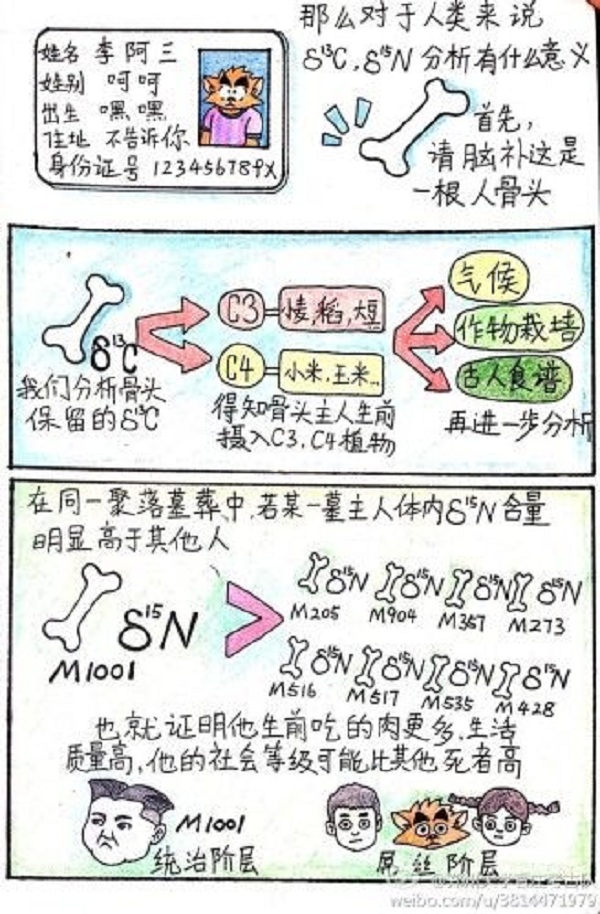 姓名 李阿三
姓别 呵呵
出生 嘿嘿
住址 不告诉你
身份证号 123456789X
那么对于人类来说
δ¹³C、δ¹⁵N分析有什么意义
首先,
请脑补这是
一根人骨头
δ¹³C
我们分析骨头
保留的δ¹³C
C3 麦,稻,大豆
C4 小米、玉米...
得知骨头主人生前
摄入C3、C4植物
气候
作物栽培
古人食谱
再进一步分析
在同一聚落墓葬中,若某一墓主人体内δ¹⁵N含量
明显高于其他人
δ¹⁵N
M1001
>
δ¹⁵N δ¹⁵N δ¹⁵N δ¹⁵N
M205 M904 M357 M273
δ¹⁵N δ¹⁵N δ¹⁵N δ¹⁵N
M516 M517 M535 M428
也就证明他生前吃的肉更多,生活
质量高,他的社会等级可能比其他死者高
M1001
统治阶层
屌丝阶层
weibo.com/u/3814471979